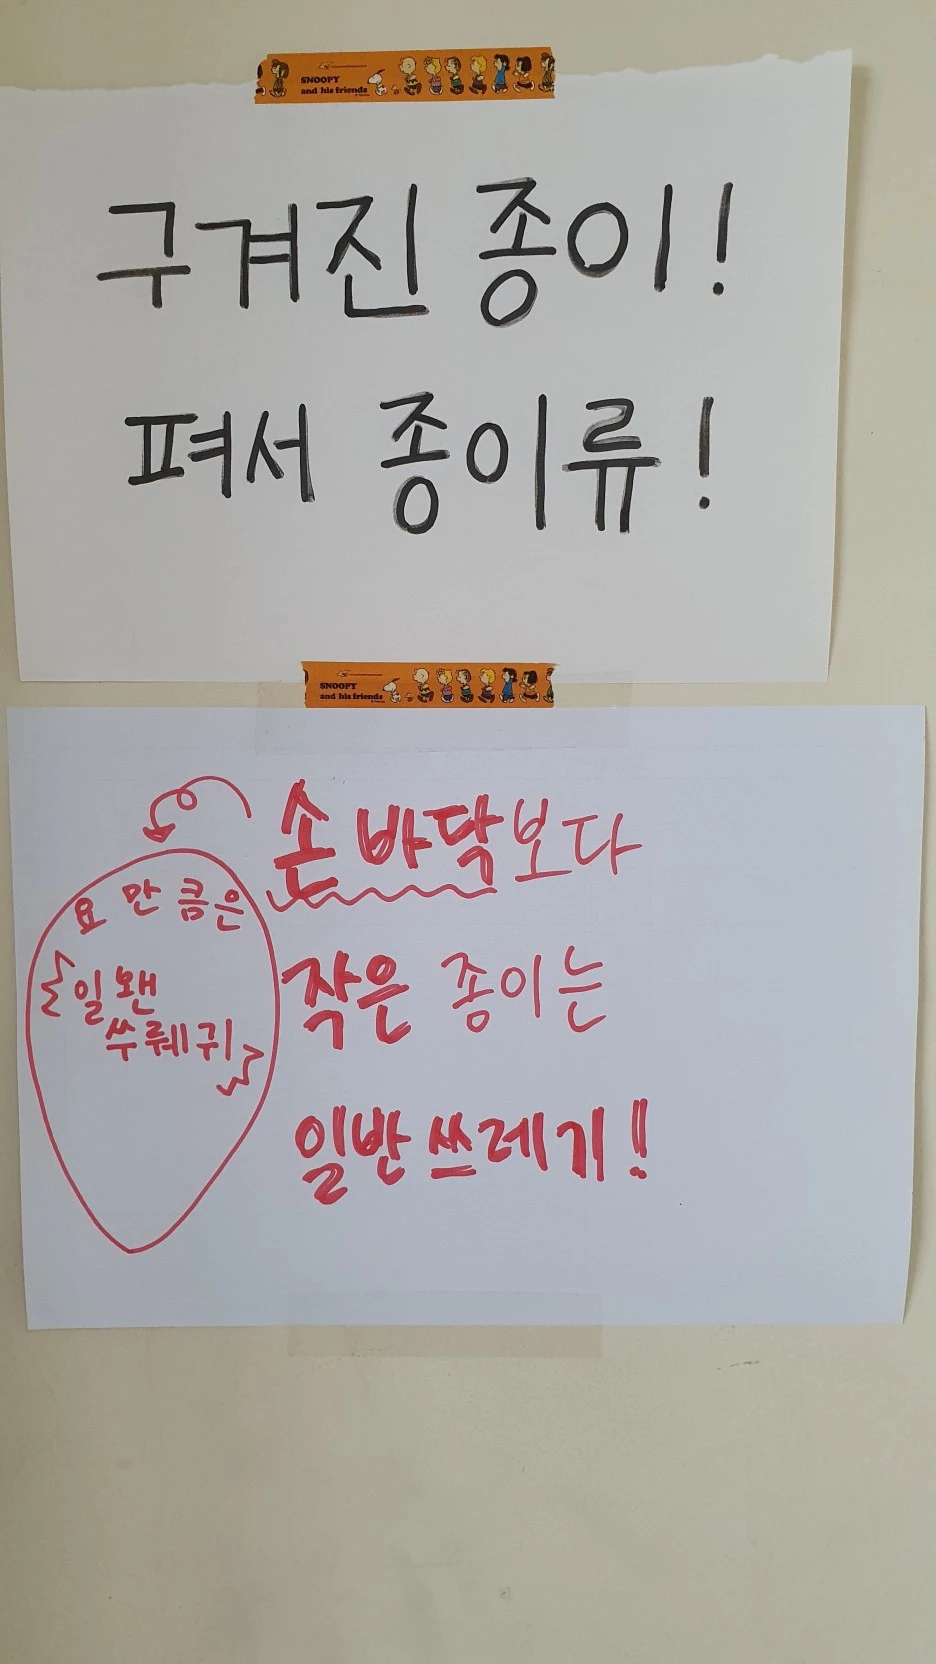 SNOOPY
and his friends
구겨진 종이!
펴서 종이류!
SNOOPY
and his friends
손바닥보다
작은 종이는
일반쓰레기!!
요만큼은
일봰
쑤뤠귀